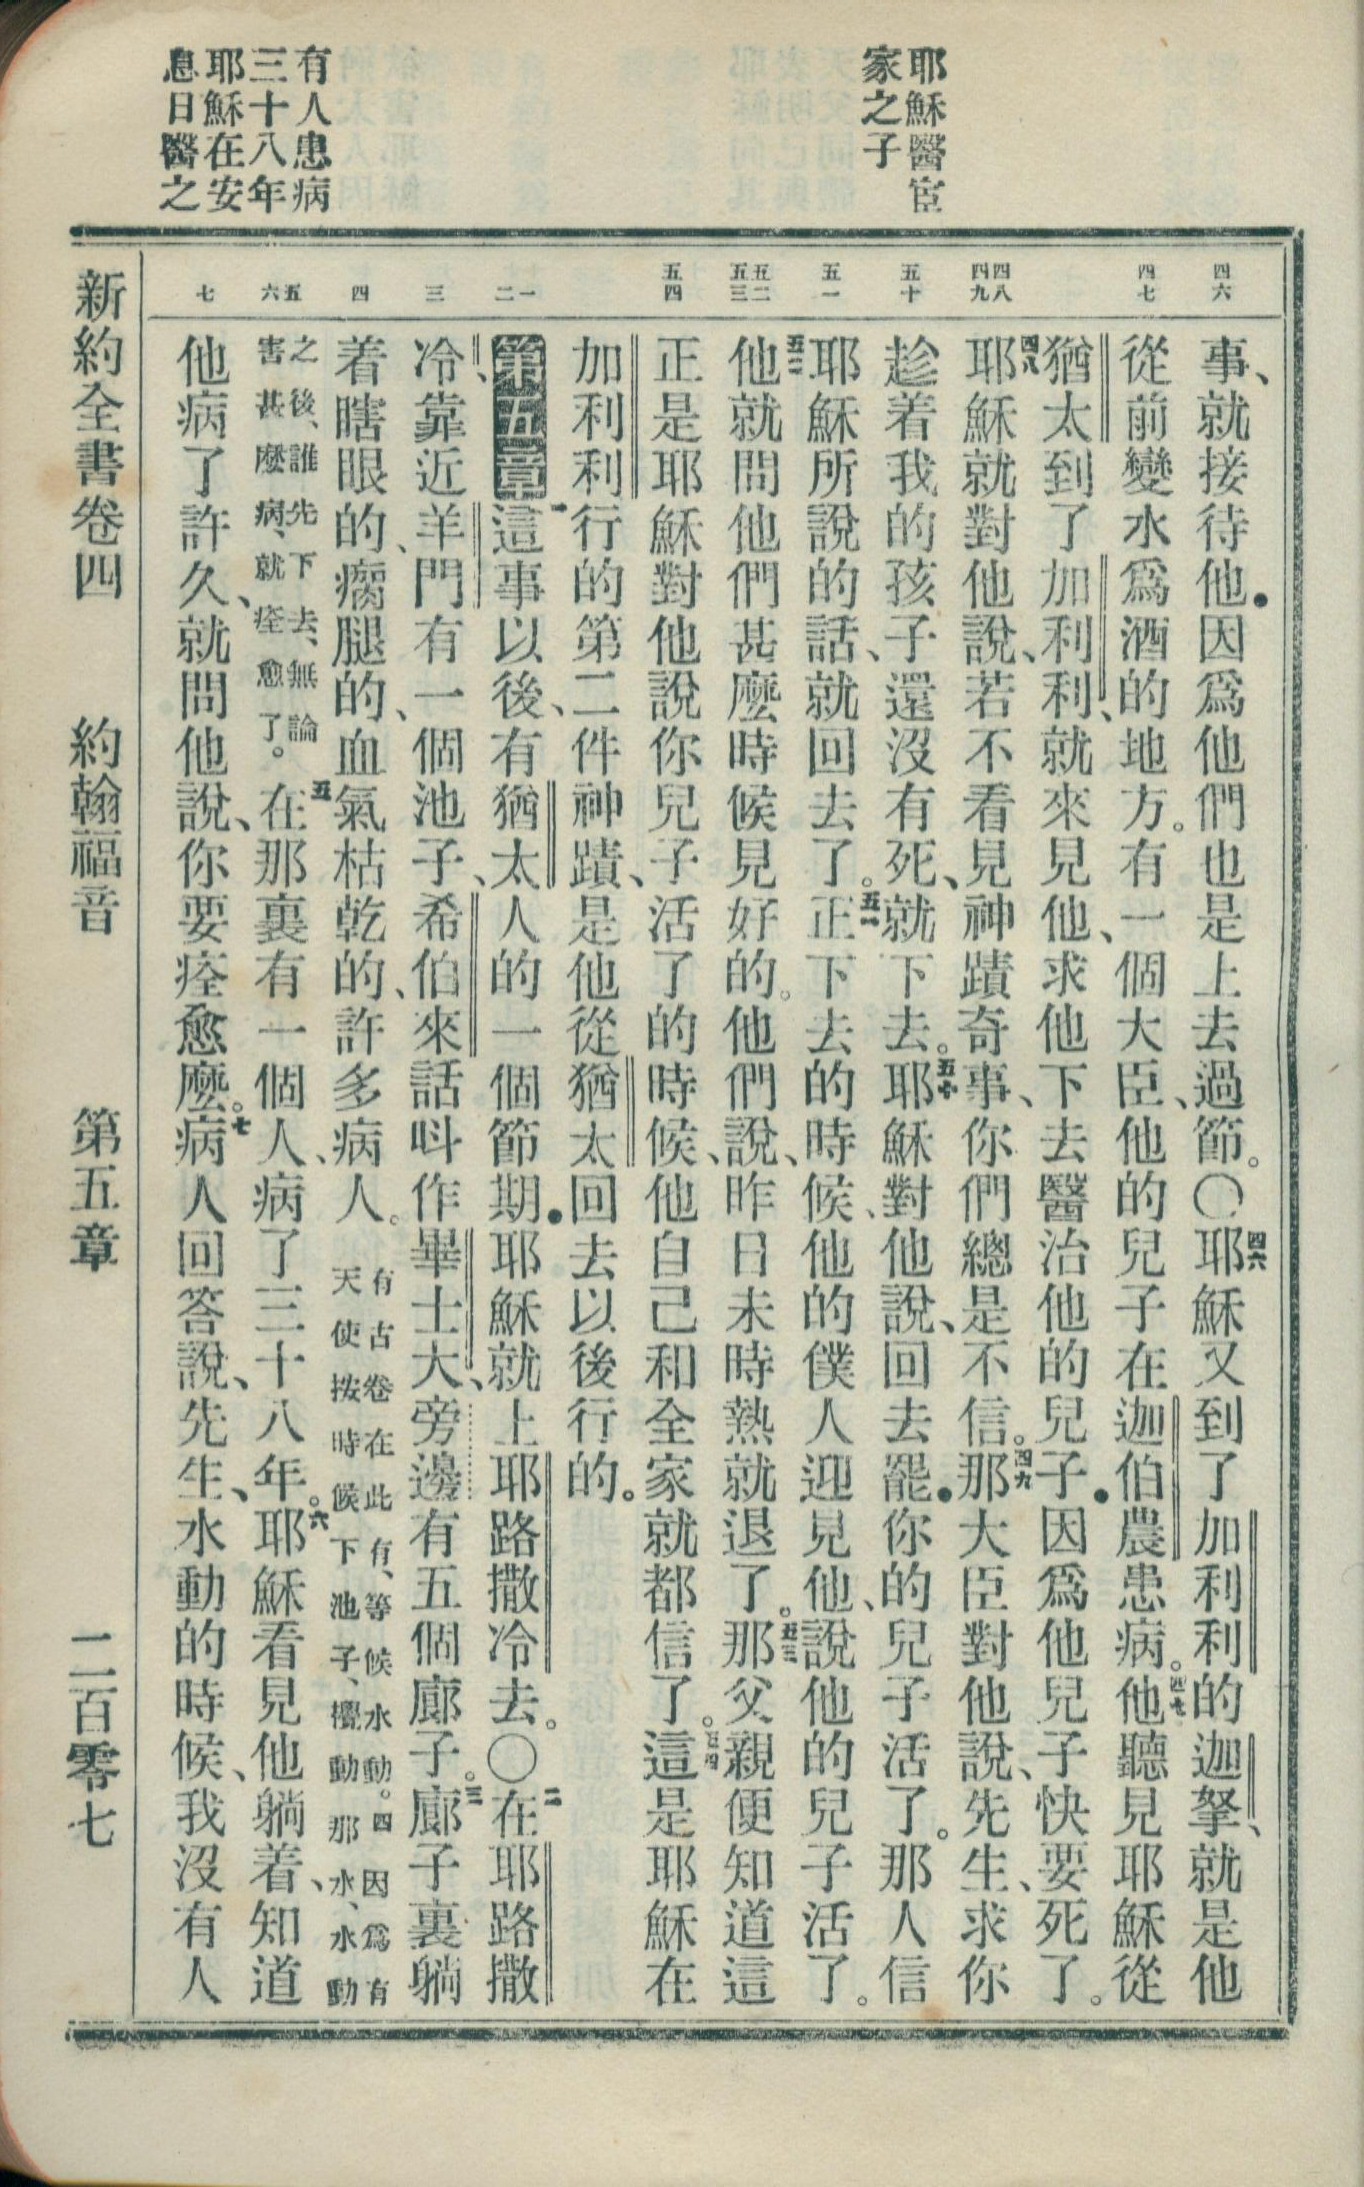 耶穌醫宦
家之子
有人患病
三十八年
耶穌在安
息日醫之
四六
四七
四八
四九
五十
五一
五二
五三
五四
一
二
三
四
五
六
七
事、就接待他．因爲他們也是上去過節。〇四六耶穌又到了加利利的迦拏、就是他
從前變水爲酒的地方。有一個大臣、他的兒子在迦伯農患病。四七他聽見耶穌從
猶太到了加利利、就來見他、求他下去醫治他的兒子．因爲他兒子快要死了。
四八耶穌就對他說、若不看見神蹟奇事、你們總是不信。四九那大臣對他說、先生、求你
趁着我的孩子還沒有死、就下去。五十耶穌對他說、回去罷．你的兒子活了。那人信
耶穌所說的話、就回去了。五一正下去的時候、他的僕人迎見他、說他的兒子活了。
五二他就問他們甚麼時候見好的。他們說、昨日未時熱就退了。五三那父親便知道這
正是耶穌對他說你兒子活了的時候、他自己和全家就都信了。五四這是耶穌在
加利利行的第二件神蹟、是他從猶太回去以後行的。
第五章 一這事以後、有猶太人的一個節期．耶穌就上耶路撒冷去。〇二在耶路撒
冷、靠近羊門有一個池子、希伯來話呌作畢士大、旁邊有五個廊子。三廊子裏躺
着瞎眼的、瘸腿的、血氣枯乾的、許多病人。有古卷在此有、等候水動。四因爲有
天使按時候下池子、攪動那水、水動
之後、誰先下去、無論
害甚麼病、就痊愈了。五在那裏有一個人、病了三十八年。六耶穌看見他躺着、知道
他病了許久、就問他說、你要痊愈麼。七病人回答說、先生、水動的時候、我沒有人
新約全書卷四 約翰福音 第五章 二百零七